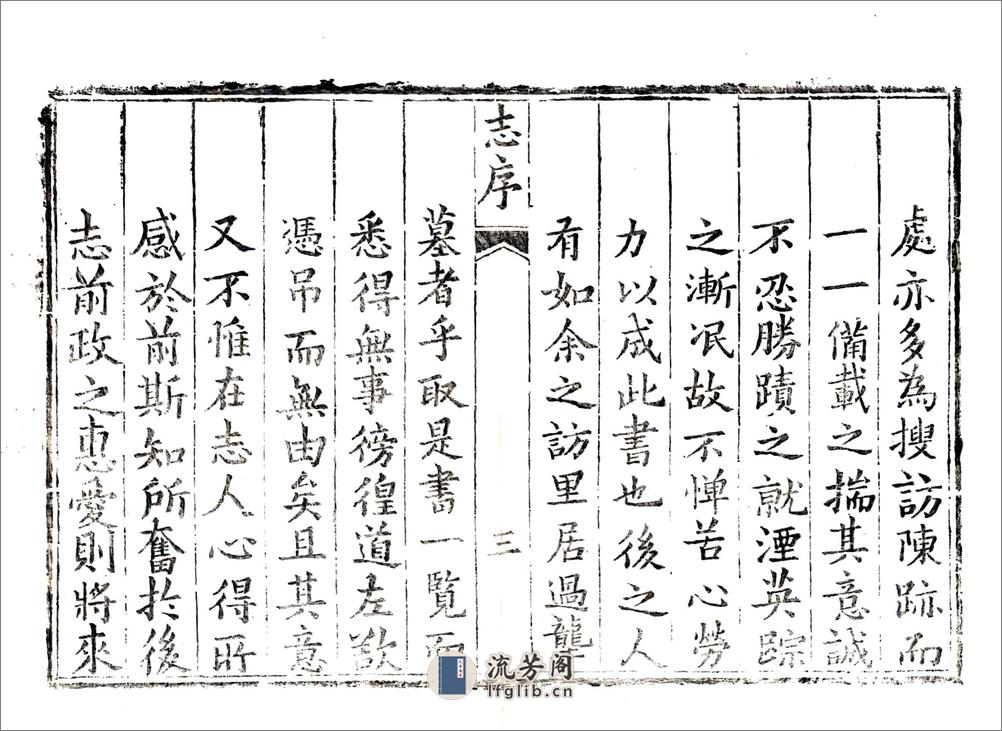 處亦多為搜訪陳跡而
一一備載之揣其意誠
不忍勝蹟之就湮英踪
之漸泯故不惮苦心勞
力以成此書也後之人
有如余之訪里居過壟
志序
三
墓者乎取是書一覽而
悉得無事徬徨道左欲
憑吊而無由矣且其意
又不惟在志人心得所
感於前斯知所奮於後
志前政之惠愛則將來
流芳阁
lfglib.cn